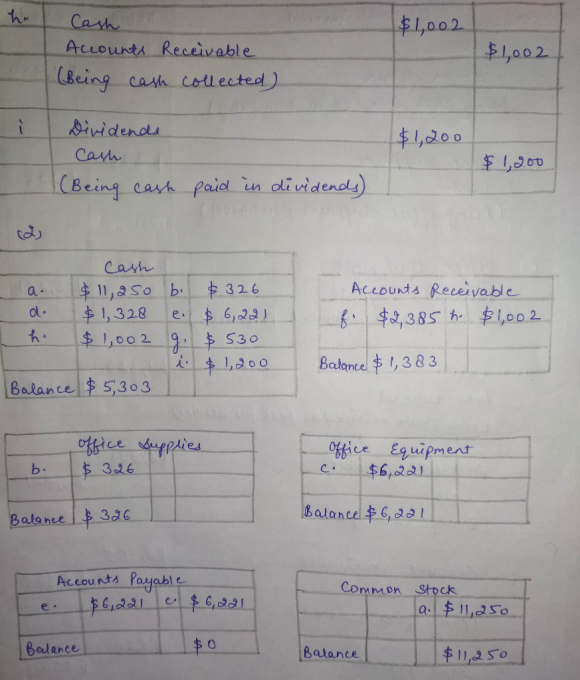 h. Cash $1,002
Accounts Receivable $1,002
(Being cash collected)
i Dividends $1,200
Cash $1,200
(Being cash paid in dividends)
(2)
Cash
a. $11,250 b. $326
d. $1,328 e. $6,221
h. $1,002 g. $530
i. $1,200
Balance $5,303
Accounts Receivable
f. $2,385 h. $1,002
Balance $1,383
Office Supplies
b. $326
Balance $326
Office Equipment
c. $6,221
Balance $6,221
Accounts Payable
e. $6,221 c. $6,221
Balance $0
Common Stock
a. $11,250
Balance $11,250